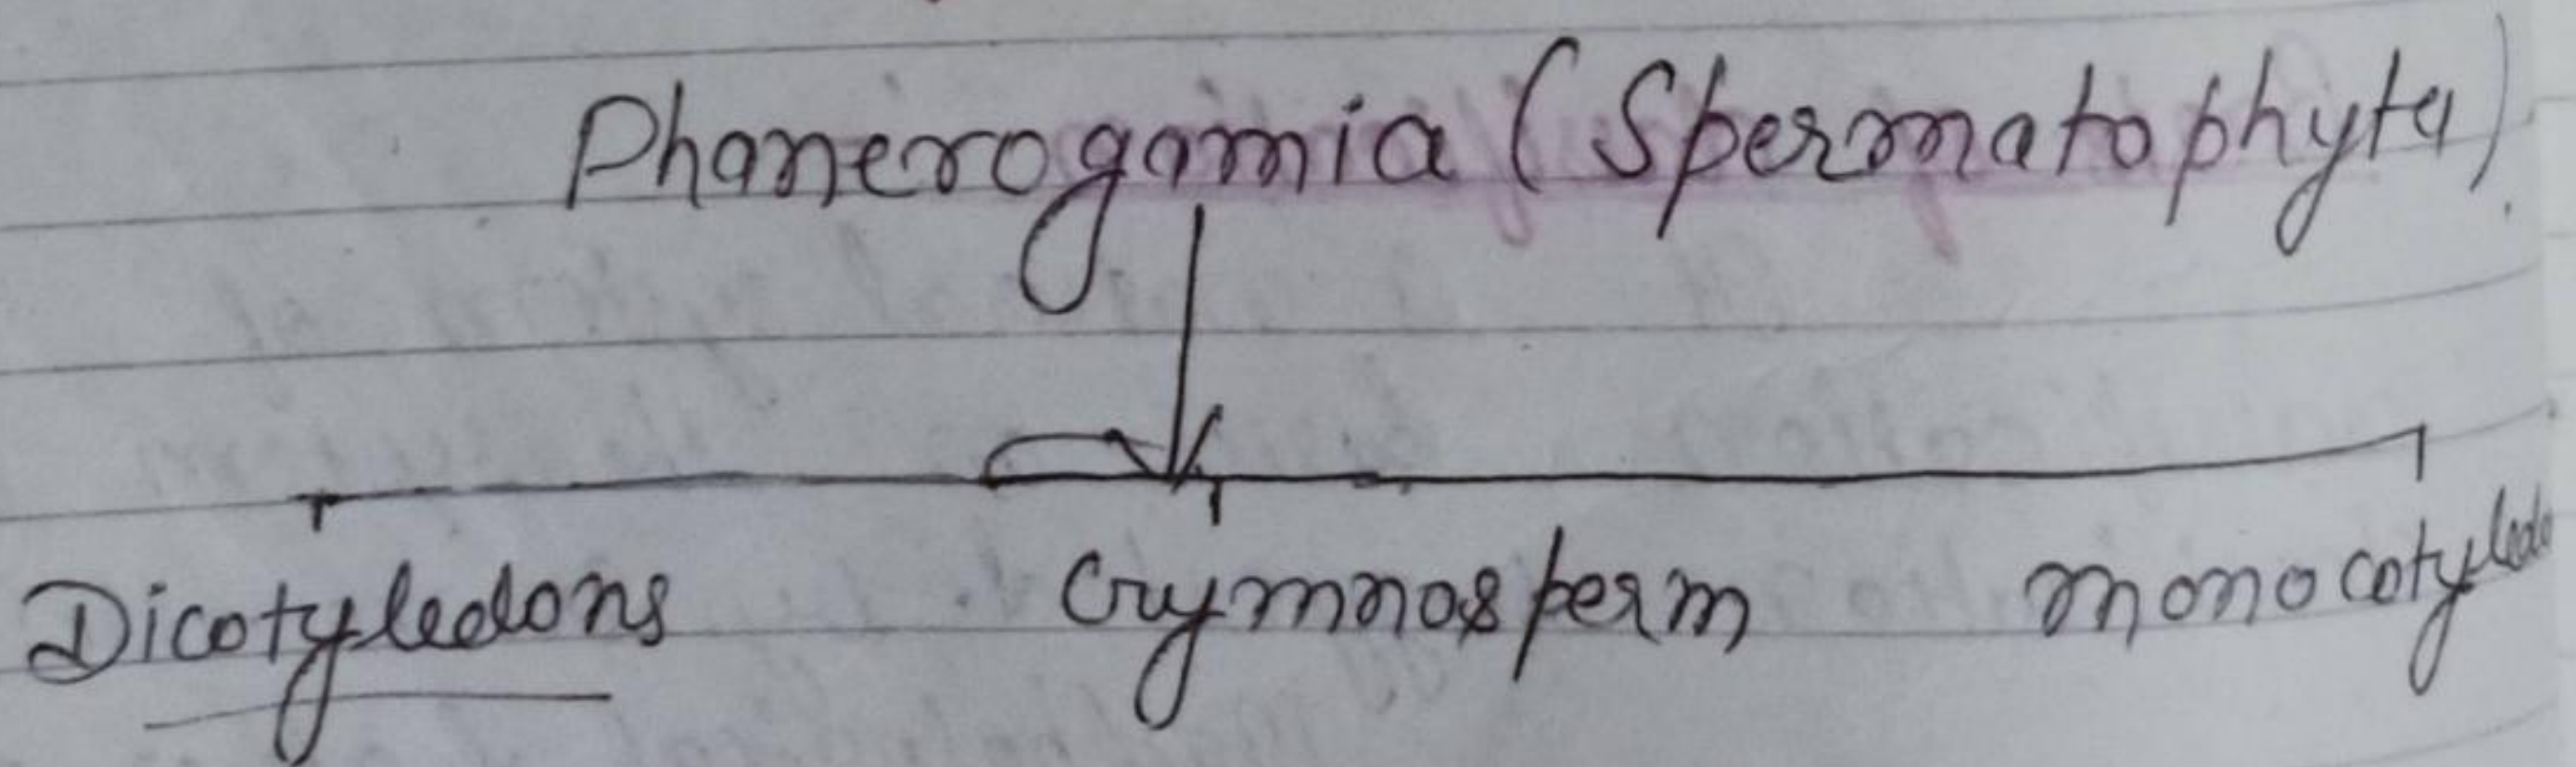 Phanerogamia (Spermatophyta)
Dicotyledons Gymnosperm monocotyledo